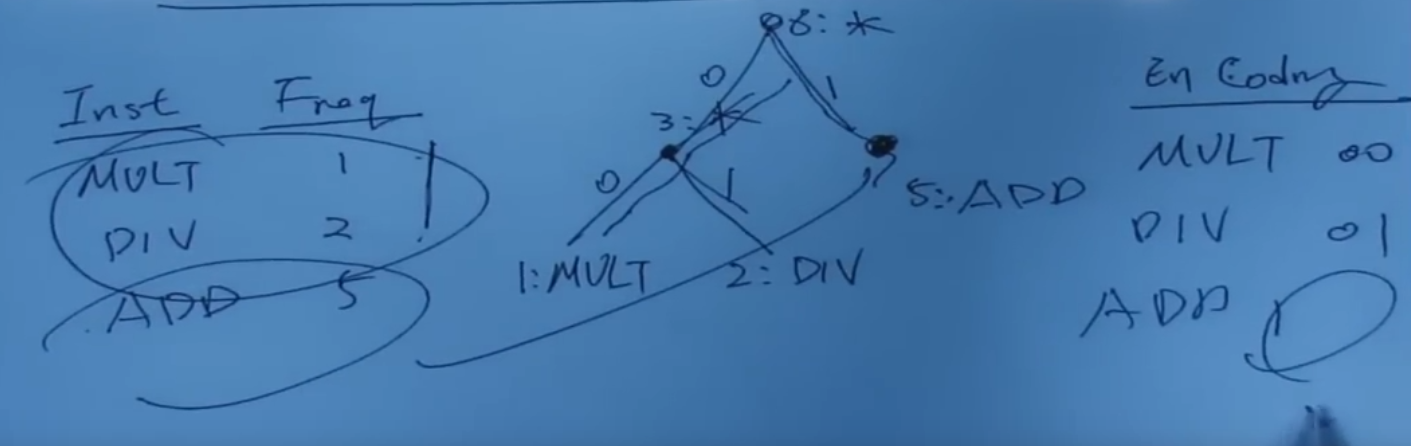 Inst Freq
MULT 1
DIV 2
ADD 5
8: *
0 1
3: *
0 1
1: MULT 2: DIV
5: ADD
En Coding
MULT 00
DIV 01
ADD 1